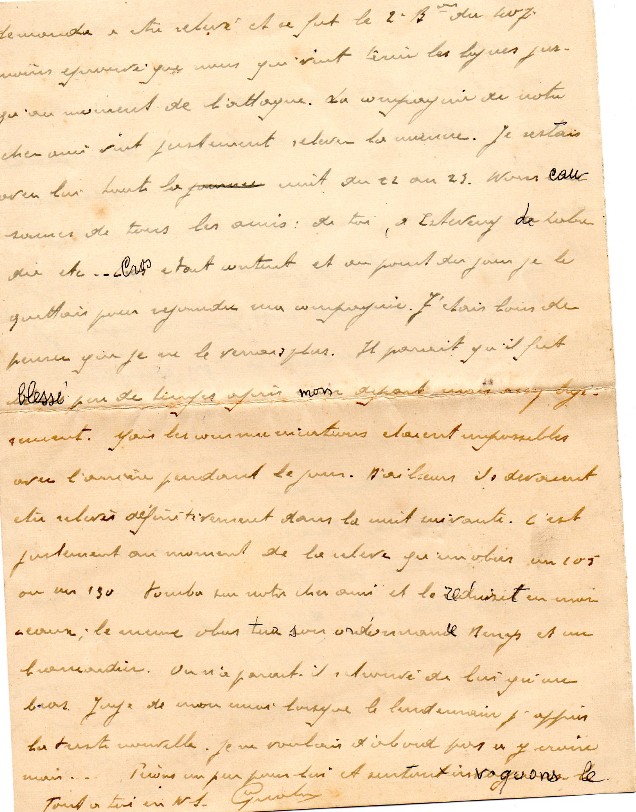 demanda a être relevé et ce fut le 2e Bon du 107
moins éprouvé que nous qui vint tenir les lignes jus-
qu'au moment de l'attaque. La compagnie de notre
cher ami vint justement relever la mienne. Je restais
avec lui toute la journée nuit du 22 au 23. Nous cau-
sames de tous les amis : de toi, d'Esteveny de
die etc -- Cros etait content et au point du jour je le
quittais pour rejoindre ma compagnie. J'étais loin de
penser que je ne le verrais plus. Il parait qu'il fut
blessé peu de temps après mon départ mais assez legè-
rement. Mais les communications etaient impossibles
avec l'arrière pendant le jour. D'ailleurs ils devaient
etre relevés définitivement dans la nuit suivante. C'est
justement au moment de la releve qu'un obus un 105
ou un 130 tomba sur notre cher ami et le réduisit en mor
-ceaux ; le meme obus tua son ordonnance et un
brancardier. On n'a parait-il retrouvé de lui qu'un
bras. Juge de mon émoi lorsque le lendemain j'appris
la triste nouvelle. je ne voulais d'abord pas a y croire
mais .. Prions un peu pour lui et surtout invoquons le
Tout a toi en N.S.